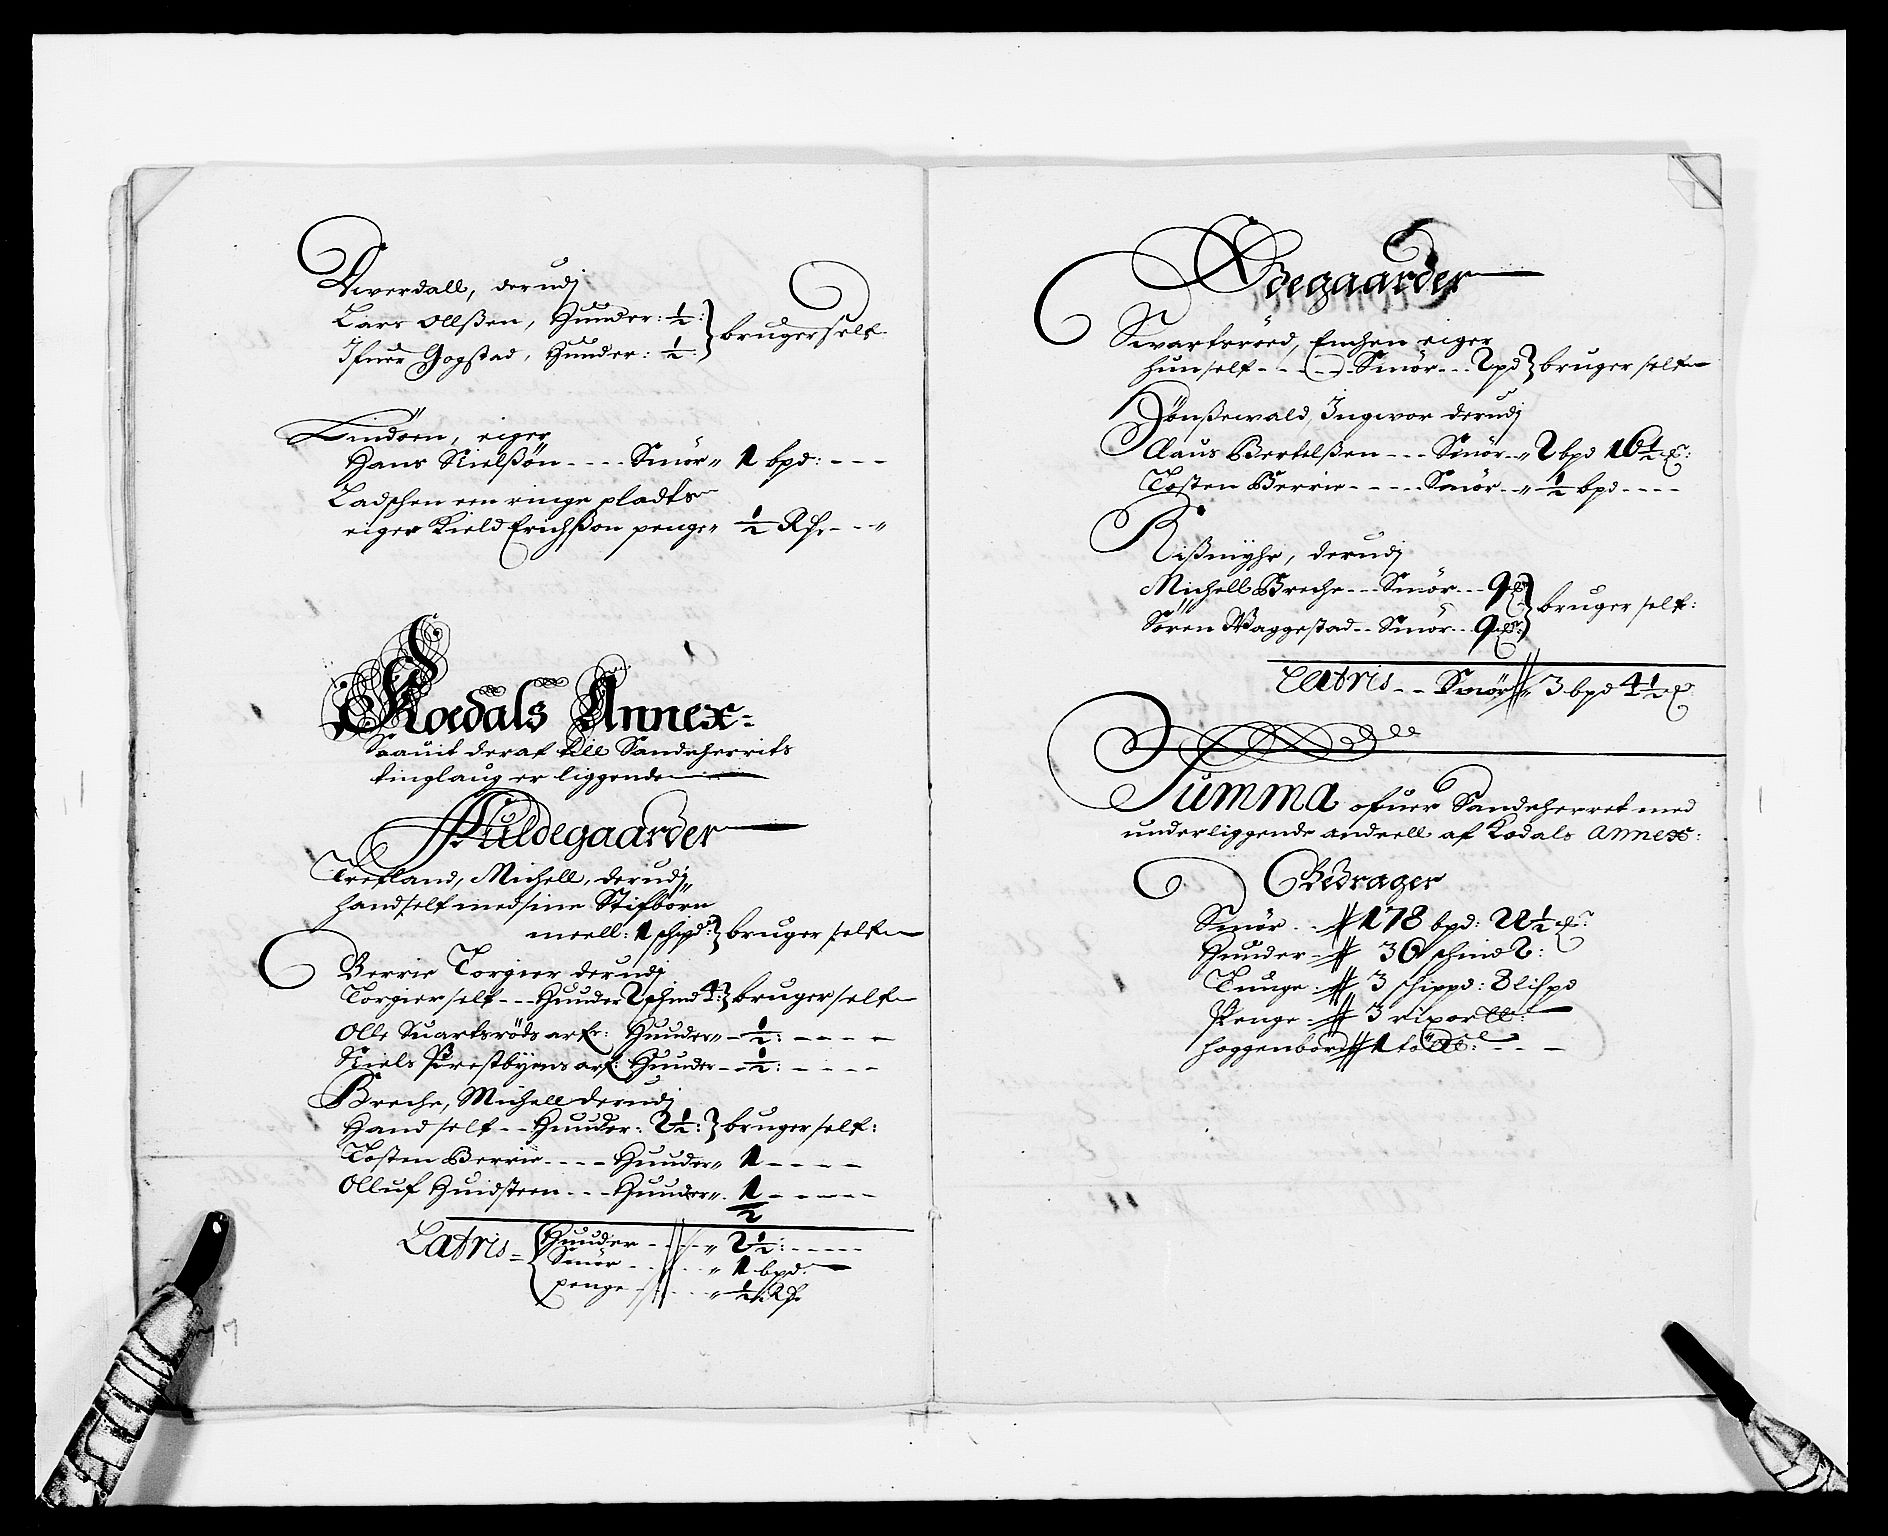 Wverdall, derudj
Lars Ollßen, Huuder: ½: } bruger self.
Ifuer Gogstad, Huuder: ½: }
Lindöen, eiger
Hans Nielßön - - - - Smör „ 1 bpd: - - -
Ladschen een ringe pladts
eiger Kield Erichßon penge „ ½ Rß. - - - „
Kodals Annex =
Saauit deraf till Sandeherrits
tinglaug er liggende
Fuldegaarder
Trefland, Michell, derudj
hand self med sine Stifbörn
meell: 1 schipd: } bruger self
Berrie Torgier derudj
Torgier self - - - Huuder 2 schind 4: } bruger self
Olle Suartsröds arf: Huuder „ - ½: - - - -
Niels Prestbyens arf: Huuder - - ½: - - - -
Breche, Michell derudj
Hand self - - Huuder: 2½: } bruger self:
Tosten Berrie - - - - Huuder „ 1 - - - -
Olluf Huidsteen - - - Huuder „ 1/2 - - - - -
Latris = { Huuder - - - - „ 2½: - - - - -
Smör - - - - „ 1 bpd.
penge - - - - „ ½ Rß.
Ödegaarder
Swartsröed, Enchen eiger
hun self - - - - - Smör - - - 2 pd } bruger self
Hönßewald, Ingwor derudj
Claus Bertelßen - - - Smör - - „ 2 bpd 16½ ℔:
Tosten Berrie - - - - - Smör - - „ ½ bpd - - - -
Rißmyhr, derudj
Michell Breche - - - Smör - - - 9 ℔ } bruger self:
Sören Waggestad - - Smör - - 9 ℔: }
Latris - - Smör „ 3 bpd 4½ ℔
Summa ofuer Sandeherret med
underliggende andeell af Kodals Annex:
Bedrager
Smör - - 178 bpd: 21½ ℔:
Huuder - 36 schind 2:
Tunge - 3 schippd: 8 lispd
Penge - 3 rixor
hoggenbore 1